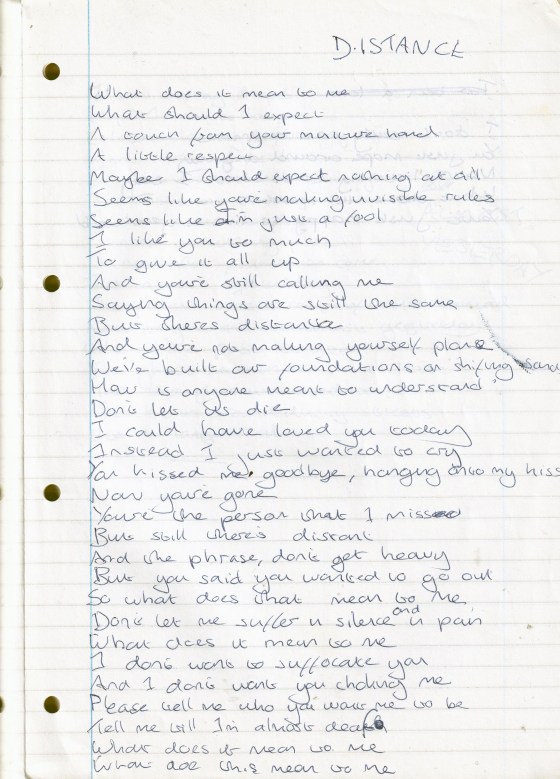 DISTANCE
What does it mean to me
What should I expect
A touch from your miniture hand
A little respect
Maybe I should expect nothing at all
Seems like you're making invisible rules
Seems like I'm just a fool
I like you to much
To give it all up
And you're still calling me
Saying things are still the same
But theres distance
And you're not making yourself plane
We've built our foundations on shifting sand
How is anyone meant to understand
Don't let us die
I could have loved you today
Instead I just wanted to cry
You kissed me goodbye, hanging onto my kiss
Now you're gone
You're the person that I miss
But still there's distant
And the phrase, don't get heavy
But you said you wanted to go out
So what does that mean to me
Don't let me suffer in silence and in pain
What does it mean to me
I don't want to suffocate you
And I don't want you choking me
Please tell me who you want me to be
Tell me till I'm almost deaf
What does it mean to me
What doe this mean to me